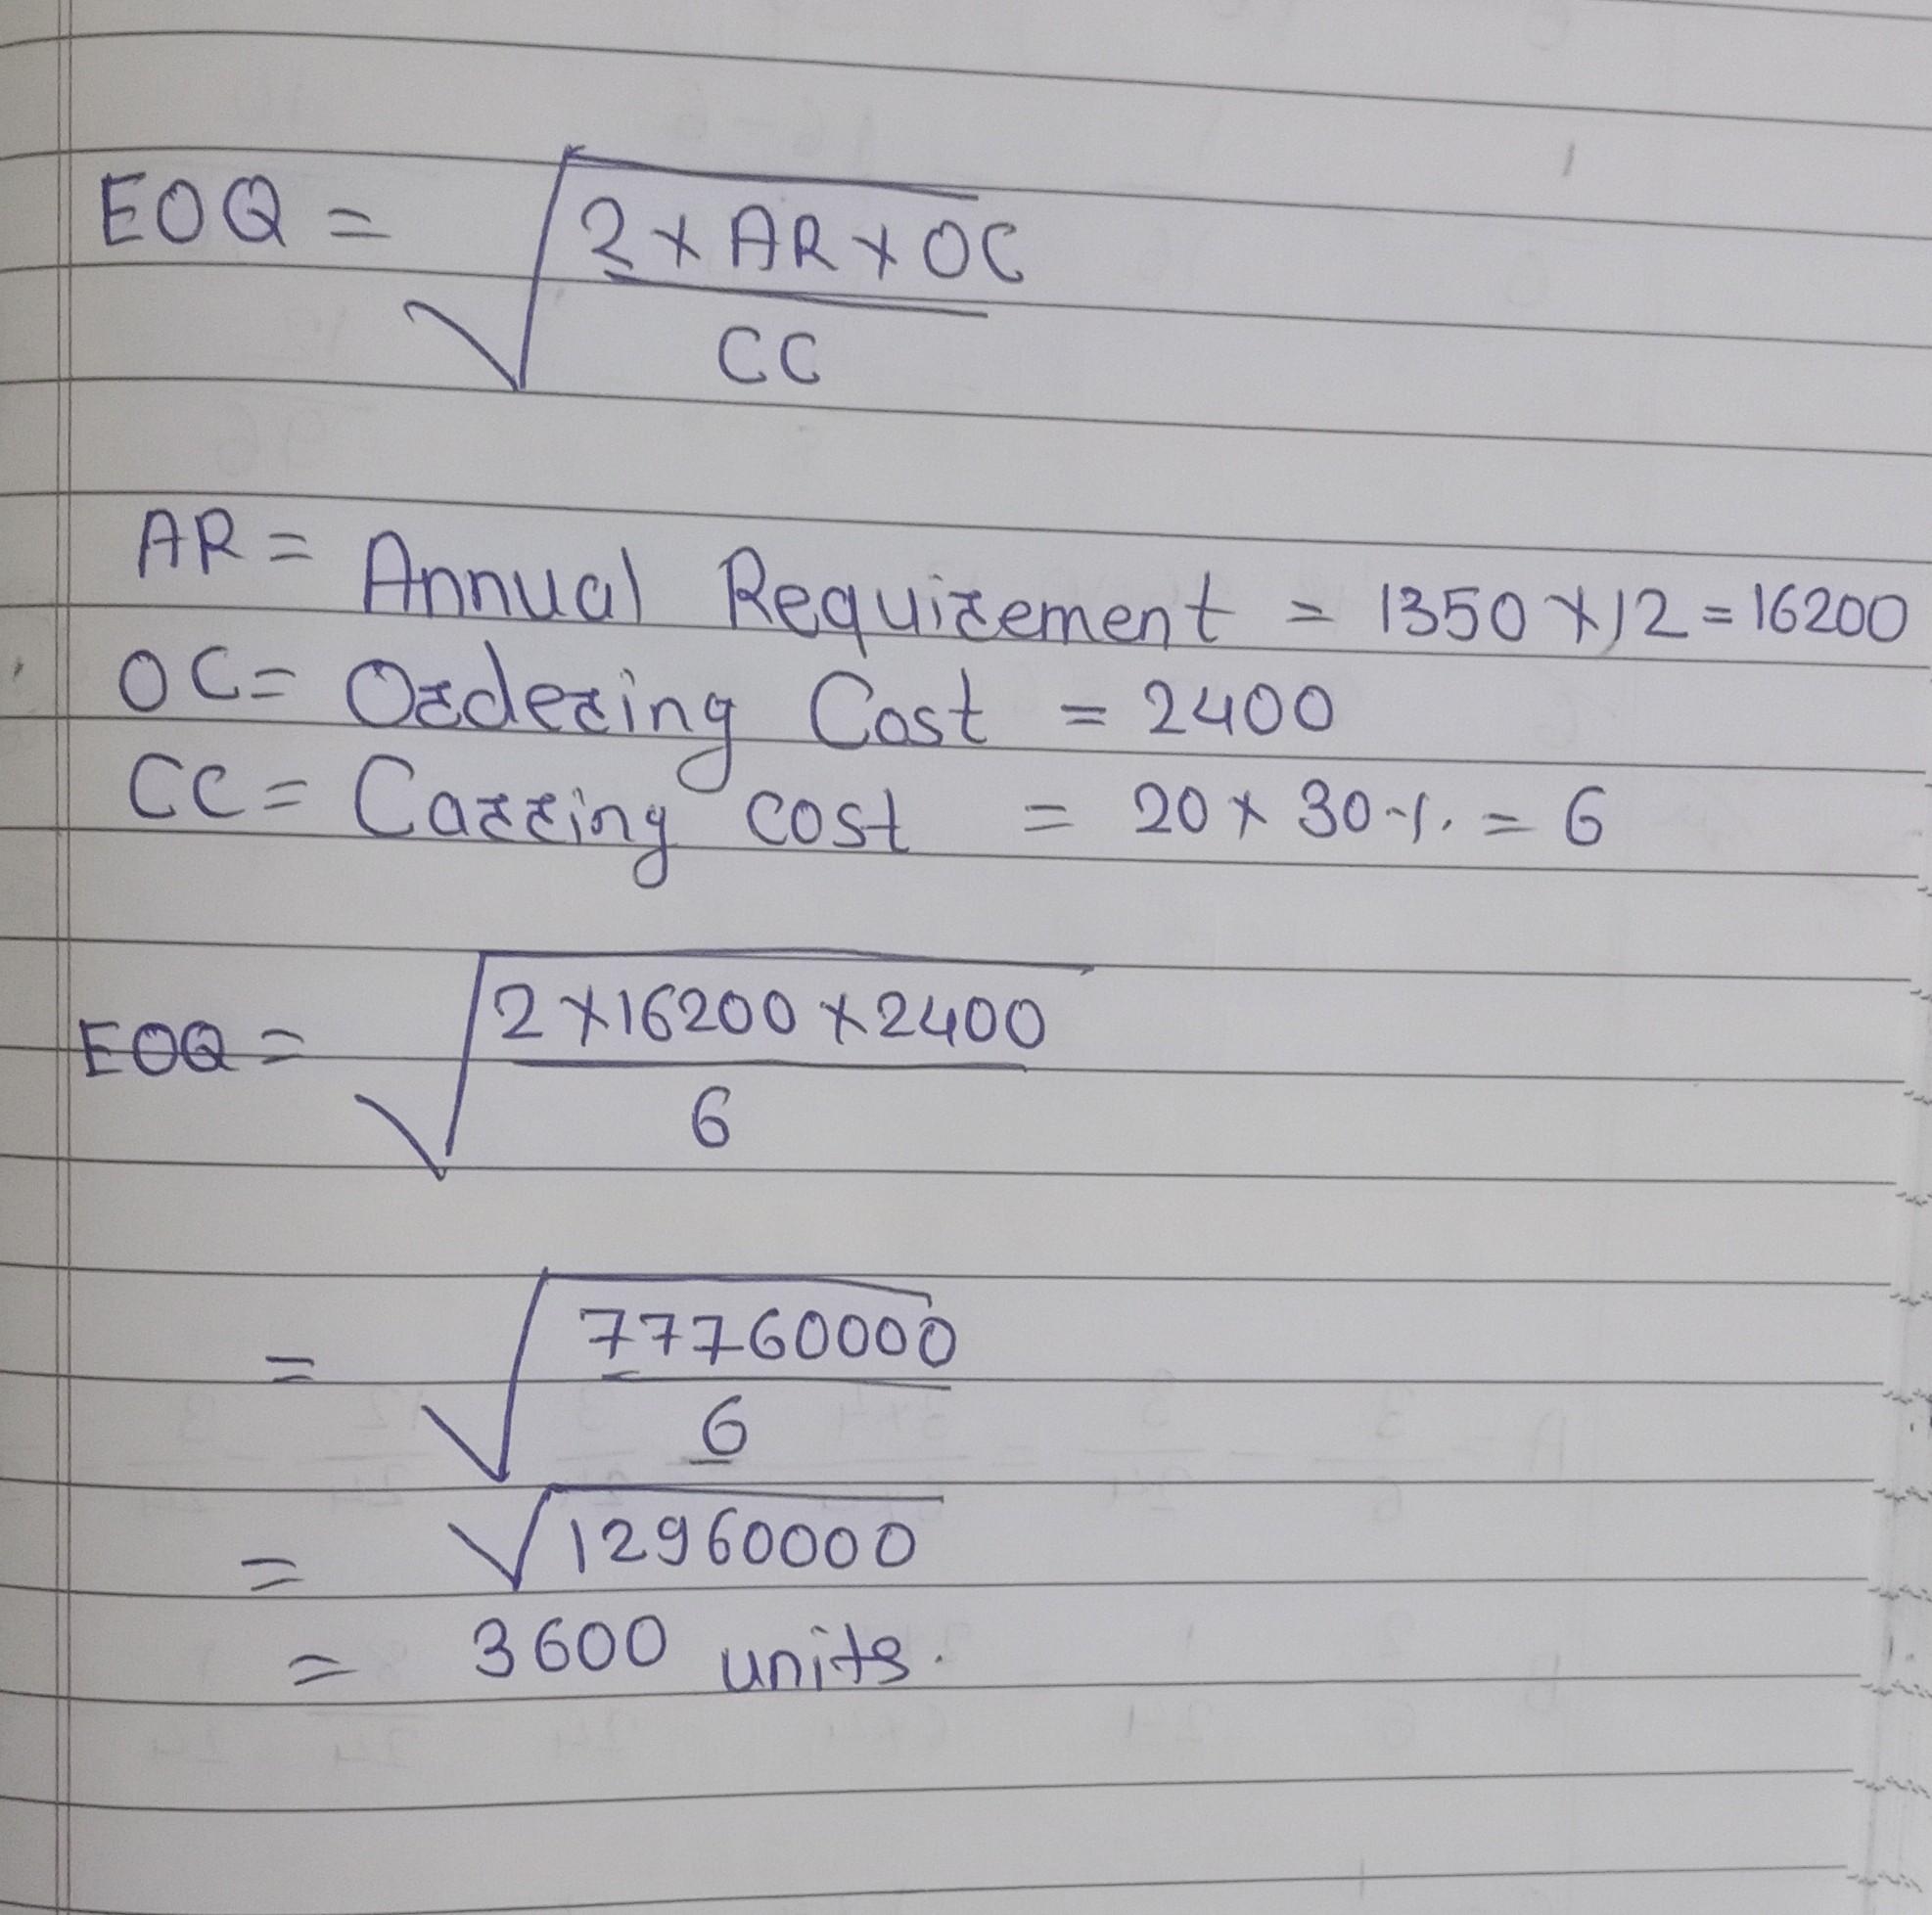 EOQ = √(2 × AR × OC / CC)
AR = Annual Requirement = 1350 × 12 = 16200
OC = Ordering Cost = 2400
CC = Carring cost = 20 × 30 % = 6
EOQ = √(2 × 16200 × 2400 / 6)
= √(77760000 / 6)
= √12960000
= 3600 units.